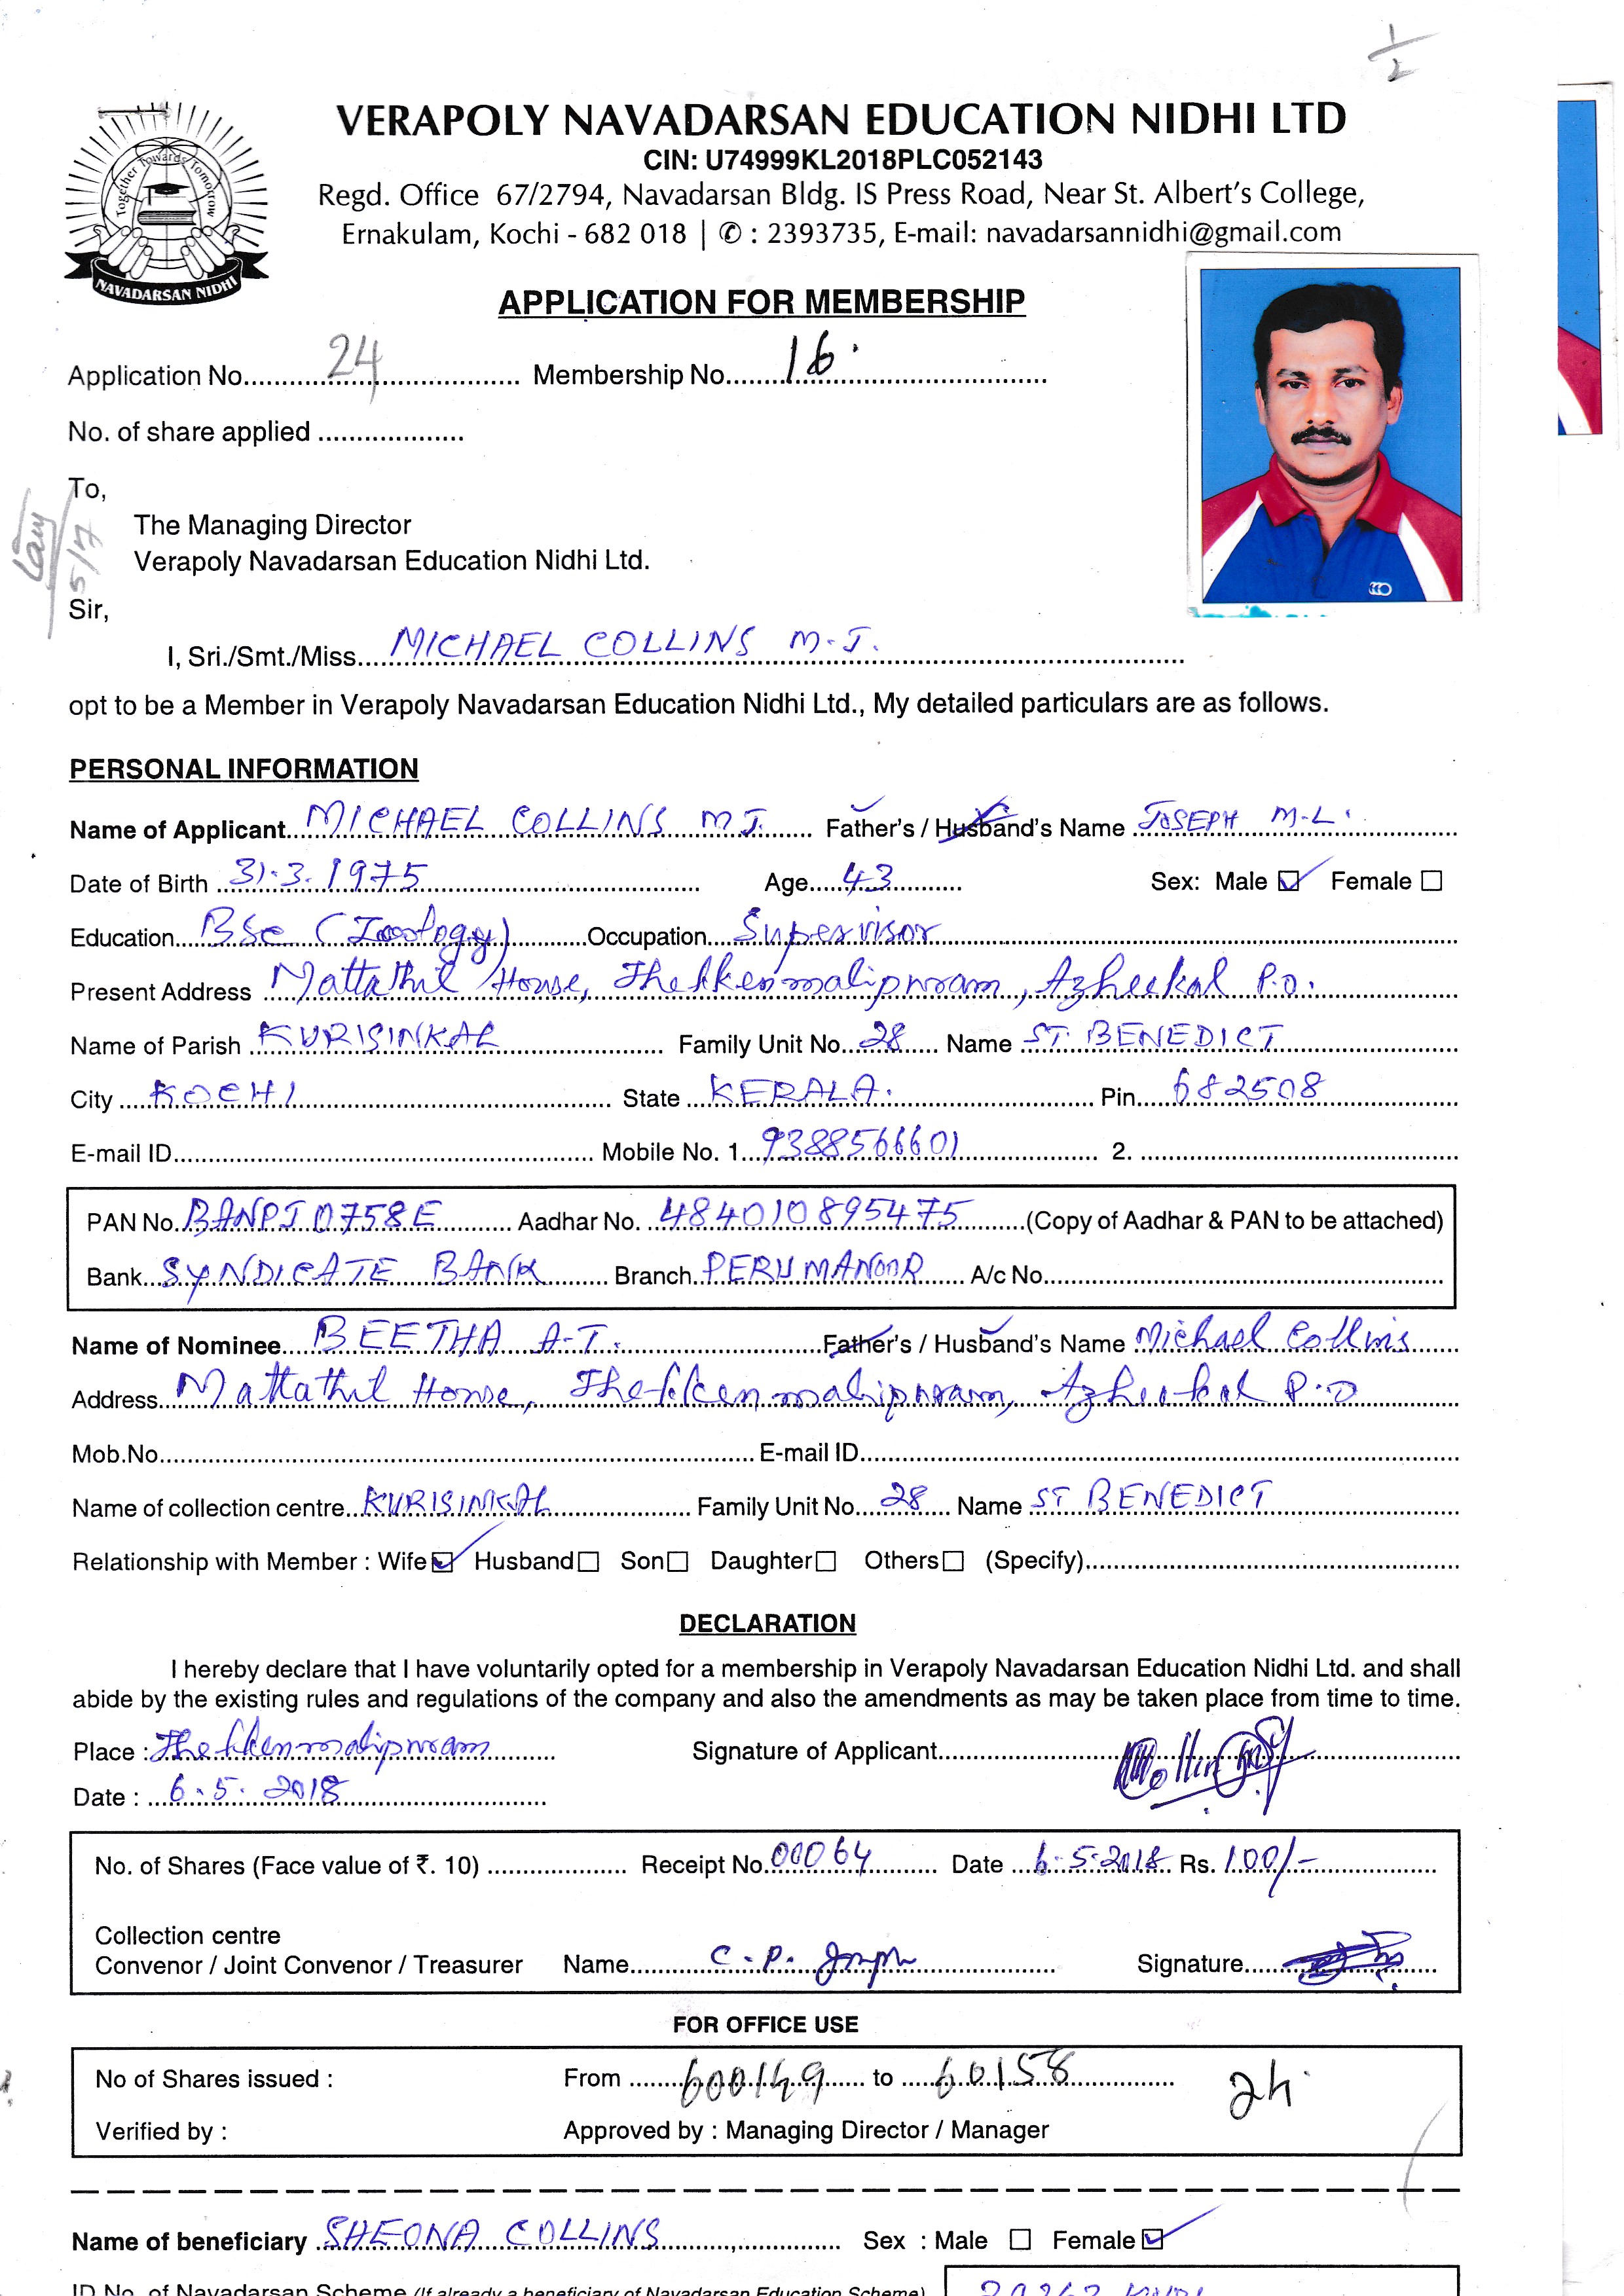 1/2
VERAPOLY NAVADARSAN EDUCATION NIDHI LTD
CIN: U74999KL2018PLC052143
Regd. Office 67/2794, Navadarsan Bldg. IS Press Road, Near St. Albert's College,
Ernakulam, Kochi - 682 018 | ✆ : 2393735, E-mail: navadarsannidhi@gmail.com
Together Towards Tomorrow
NAVADARSAN NIDHI
APPLICATION FOR MEMBERSHIP
Application No. 24 Membership No. 16
No. of share applied
To,
The Managing Director
Verapoly Navadarsan Education Nidhi Ltd.
5/7
Sir,
I, Sri./Smt./Miss. MICHAEL COLLINS M.J.
opt to be a Member in Verapoly Navadarsan Education Nidhi Ltd., My detailed particulars are as follows.
PERSONAL INFORMATION
Name of Applicant MICHAEL COLLINS M J. Father's / Husband's Name JOSEPH M.L.
Date of Birth 31.3.1975 Age 43 Sex: Male ☑ Female ☐
Education BSc (Zoology) Occupation Supervisor
Present Address Mattathil House, Thekkenmalipuram, Azheekal P.O.
Name of Parish KURISINKAL Family Unit No. 28 Name ST. BENEDICT
City KOCHI State KERALA. Pin 682508
E-mail ID Mobile No. 1. 9388566601 2.
PAN No. BANPJ0758E Aadhar No. 484010895475 (Copy of Aadhar & PAN to be attached)
Bank SYNDICATE BANK Branch PERUMANOOR A/c No.
Name of Nominee BEETHA A.T. Father's / Husband's Name Michael Collins
Address Mattathil House, Thekkenmalipuram, Azheekal P.O
Mob.No. E-mail ID
Name of collection centre KURISINKAL Family Unit No. 28 Name ST BENEDICT
Relationship with Member : Wife ☑ Husband ☐ Son ☐ Daughter ☐ Others ☐ (Specify)
DECLARATION
I hereby declare that I have voluntarily opted for a membership in Verapoly Navadarsan Education Nidhi Ltd. and shall
abide by the existing rules and regulations of the company and also the amendments as may be taken place from time to time.
Place : Thekkenmalipuram Signature of Applicant
Date : 6.5.2018
No. of Shares (Face value of ₹. 10) Receipt No. 00064 Date 6.5.2018 Rs. 100/-
Collection centre
Convenor / Joint Convenor / Treasurer Name C.P. Joseph Signature
FOR OFFICE USE
No of Shares issued : From 600149 to 60158 24
Verified by : Approved by : Managing Director / Manager
Name of beneficiary SHEONA COLLINS Sex : Male ☐ Female ☑
ID No. of Navadarsan Scheme (If already a beneficiary of Navadarsan Education Scheme)